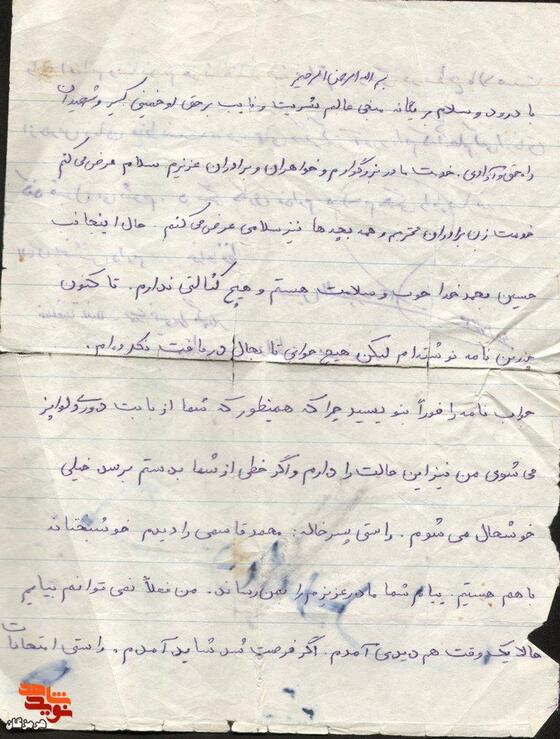 بسم الله الرحمن الرحیم
با درود و سلام بر یگانه منجی عالم بشریت و نایب برحق او خمینی کبیر و شهیدان
راه حق و آزادی. خدمت مادر بزرگوارم و خواهران و برادران عزیزم سلام عرض می کنم
خدمت زن برادران محترم و همه بچه ها نیز سلامی عرض می کنم. حال اینجانب
حسین بحمد خدا خوب و سلامت هستم و هیچ کسالتی ندارم. تا کنون
چندین نامه نوشته ام لیکن هیچ جوابی تا بحال دریافت نکرده ام.
جواب نامه را فوراً بنویسید چرا که همینطور که شما از بابت دوری دلواپس
می شوی من نیز این حالت را دارم و اگر خطی از شما بدستم برسد خیلی
خوشحال می شوم. راستی پسرخاله: محمد قاسمی را دیدم خوشبختانه
باهم هستیم. پیام شما مادر عزیزم را بمن رساند. من فعلاً نمی توانم بیایم
حالا یک وقت هم دیدی آمدم. اگر فرصت شد شاید آمدم. راستی امتحانات
نوید شاهد
هرمزگان